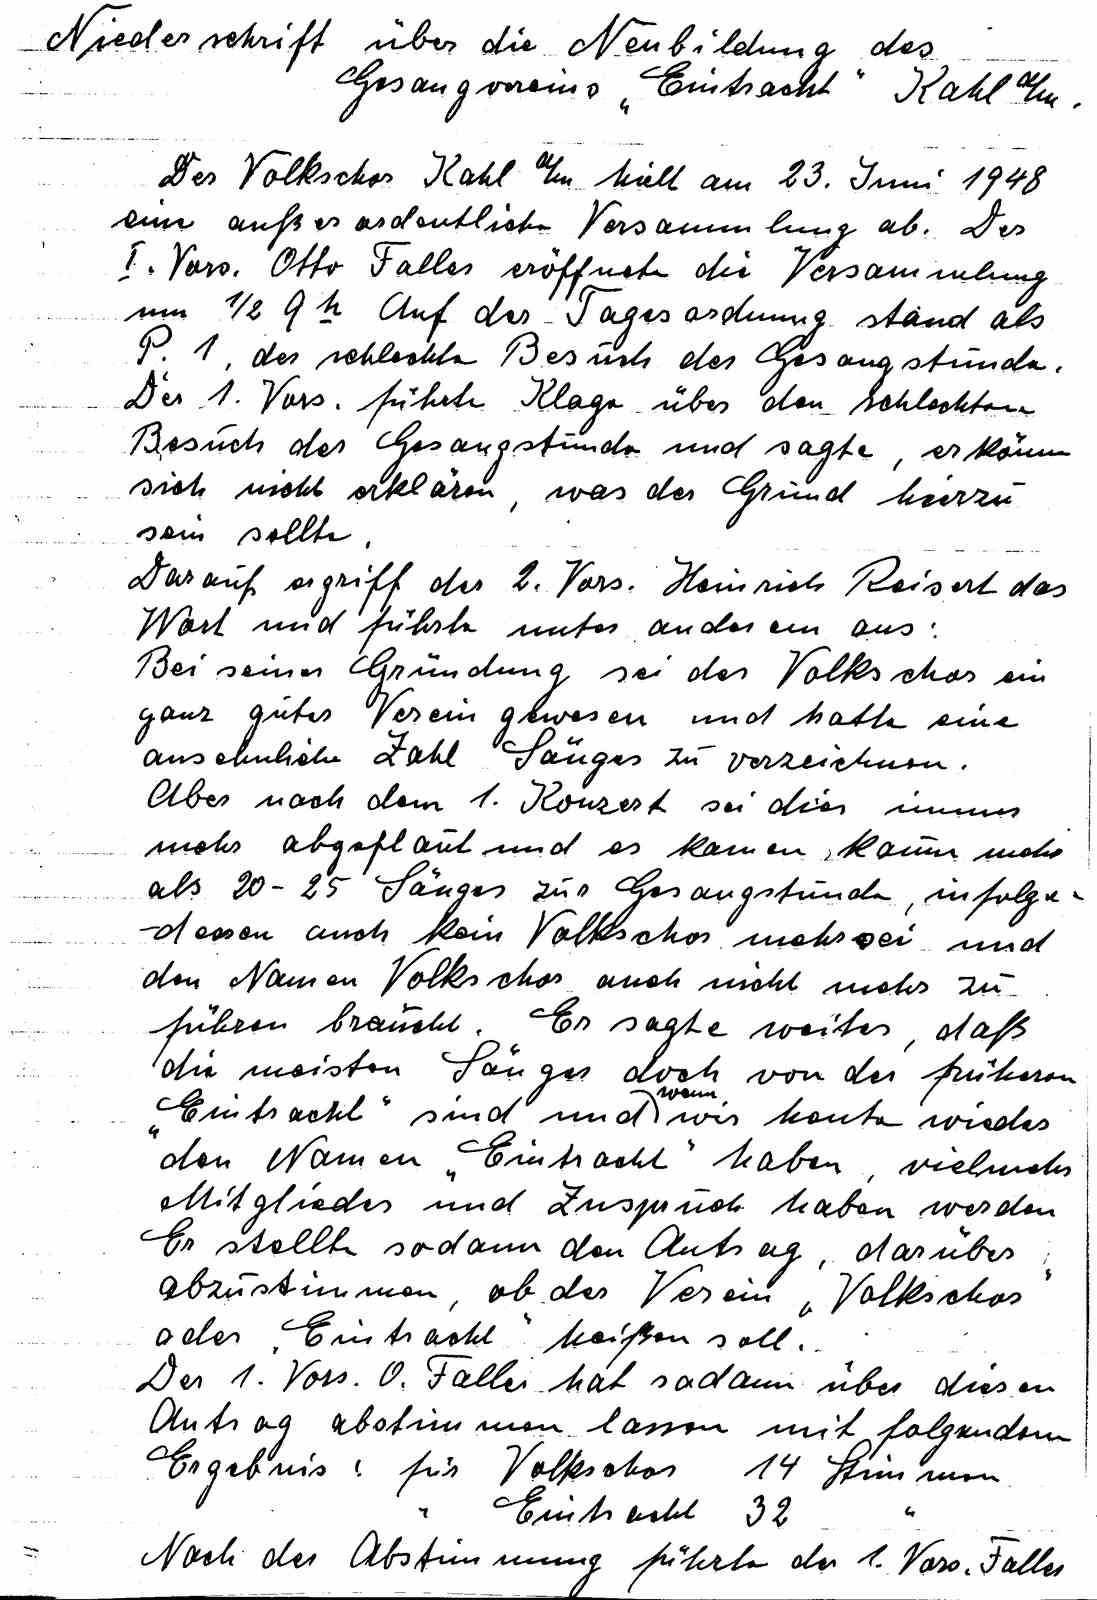 Niederschrift über die Neubildung des
Gesangvereins „Eintracht" Kahl a/m.
Der Volkschor Kahl a/m hielt am 23. Juni 1948
eine außerordentliche Versammlung ab. Der
I. Vors. Otto Faller eröffnete die Versammlung
um 1/2 9 h Auf der Tagesordnung stand als
P. 1, der schlechte Besuch der Gesangstunde.
Der 1. Vors. führte Klage über den schlechten
Besuch der Gesangstunde und sagte, er könne
sich nicht erklären, was der Grund hierzu
sein sollte.
Darauf ergriff der 2. Vors. Heinrich Reisert das
Wort und führte unter anderem aus:
Bei seiner Gründung sei der Volkschor ein
ganz guter Verein gewesen und hatte eine
ansehnliche Zahl Sänger zu verzeichnen.
Aber nach dem 1. Konzert sei dies immer
mehr abgeflaut und es kamen, kaum mehr
als 20-25 Sänger zur Gesangstunde, infolge-
dessen auch kein Volkschor mehr sei und
den Namen Volkschor auch nicht mehr zu
führen braucht. Er sagte weiter, daß
die meisten Sänger doch von der früheren
„Eintracht" sind und wenn wir heute wieder
den Namen „Eintracht" haben, vielmehr
Mitglieder und Zuspruch haben werden
Er stellte sodann den Antrag, darüber
abzustimmen, ob der Verein „Volkschor"
oder „Eintracht" heißen soll.
Der 1. Vors. O. Faller hat sodann über diesen
Antrag abstimmen lassen mit folgendem
Ergebnis: für Volkschor 14 Stimmen
" Eintracht 32 "
Nach der Abstimmung führte der 1. Vors. Faller